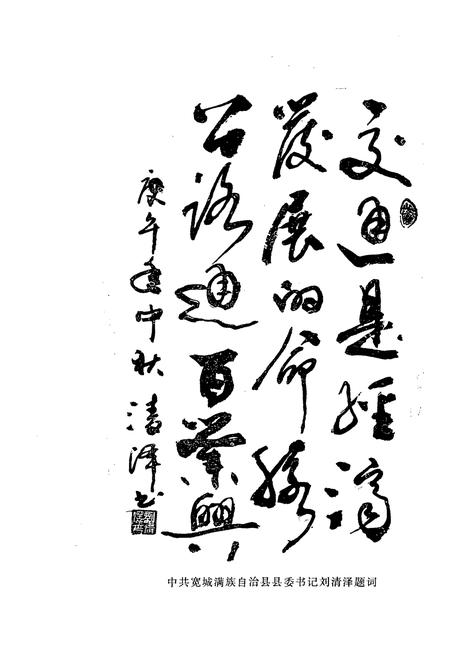 交通是經濟
發展的命脉
公路通百業興
庚午年中秋 清泽书
中共宽城满族自治县县委书记刘清泽题词